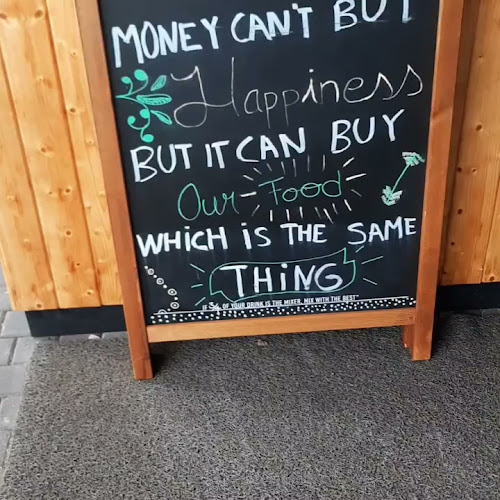 MONEY CAN'T BUY
Happiness
BUT IT CAN BUY
Our Food
WHICH IS THE SAME
THiNG
IF 3/4 OF YOUR DRINK IS THE MIXER, MIX WITH THE BEST